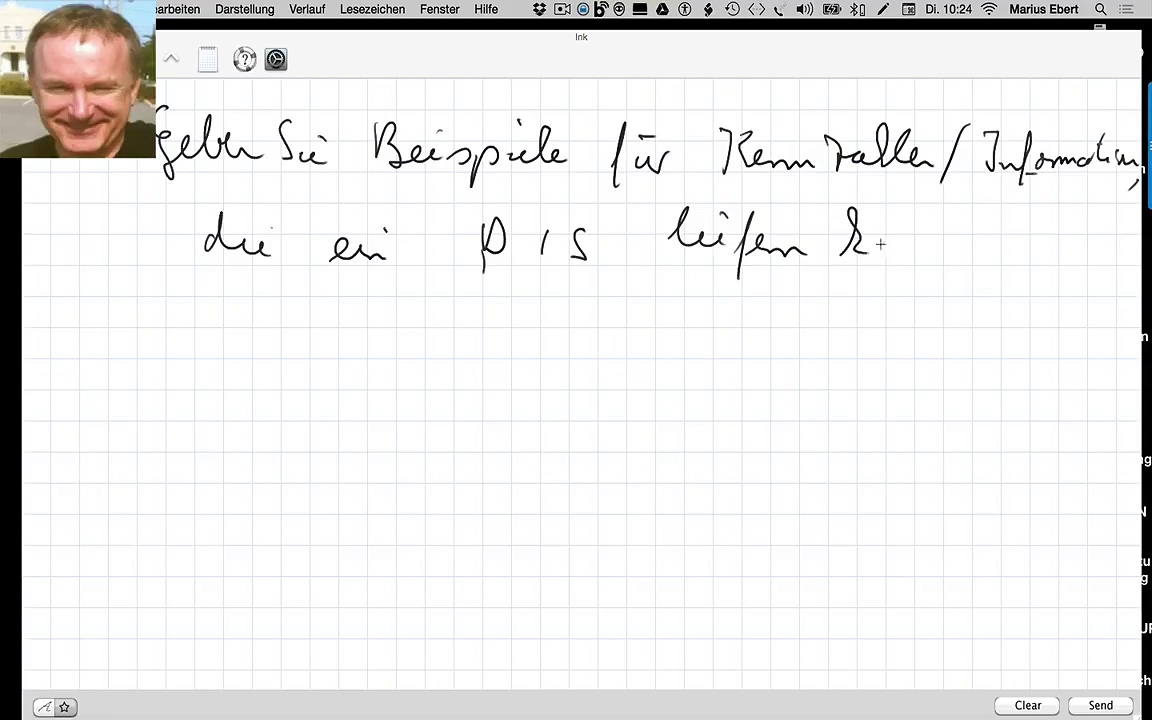 arbeiten Darstellung Verlauf Lesezeichen Fenster Hilfe Di. 10:24 Marius Ebert
Ink
geben Sie Beispiele für Kennzahlen/Information,
die ein PIS liefern k
Clear Send